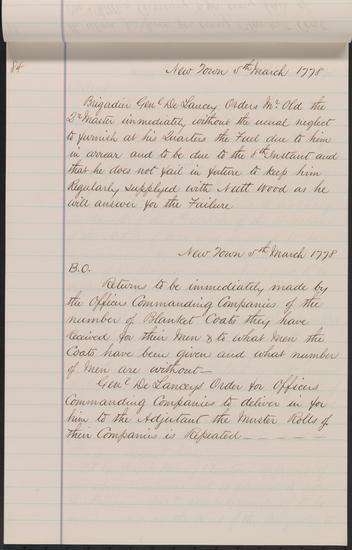 84
New Town 5th March 1778
Brigadier Genl De Lancey Orders Mr Old the
Qr Master immediately without the usual neglect
to furnish at his Quarters the Fuel due to him
in arrear and to be due to the 8th Instant and
that he does not fail in future to keep him
Regularly Supplyed with Nutt Wood as he
will answer for the Failure
New Town 5th March 1778
B.O.
Returns to be immediately made by
the Officer Commanding Companies of the
number of Blanket Coats they have
received for their Men & to what Men the
Coats have been given and what number
of Men are without—
Genl De Lanceys Order for Officers
Commanding Companies to deliver in for
him to the Adjutant the Muster Rolls of
their Companies is Repeated — — — —